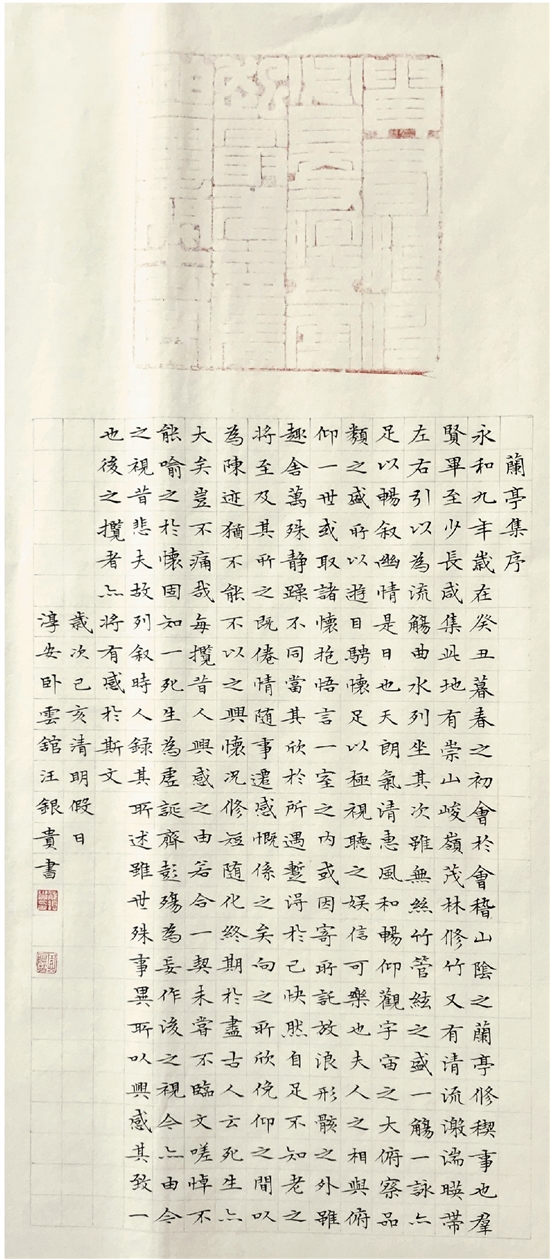 蘭亭集序
永和九年歲在癸丑暮春之初會於會稽山陰之蘭亭修禊事也羣
賢畢至少長咸集此地有崇山峻嶺茂林修竹又有清流激湍暎帶
左右引以為流觴曲水列坐其次雖無絲竹管絃之盛一觴一詠亦
足以暢叙幽情是日也天朗氣清惠風和暢仰觀宇宙之大俯察品
類之盛所以遊目騁懷足以極視聽之娛信可樂也夫人之相與俯
仰一世或取諸懷抱悟言一室之內或因寄所託放浪形骸之外雖
趣舍萬殊静躁不同當其欣於所遇蹔得於己快然自足不知老之
將至及其所之既倦情随事遷感慨係之矣向之所欣俛仰之間以
為陳迹猶不能不以之興懷况修短随化終期於盡古人云死生亦
大矣豈不痛哉每攬昔人興感之由若合一契未嘗不臨文嗟悼不
能喻之於懷固知一死生為虛誕齊彭殤為妄作後之視今亦由今
之視昔悲夫故列叙時人録其所述雖世殊事異所以興感其致一
也後之攬者亦將有感於斯文
歲次己亥清明假日
淳安卧雲舘汪銀貴書